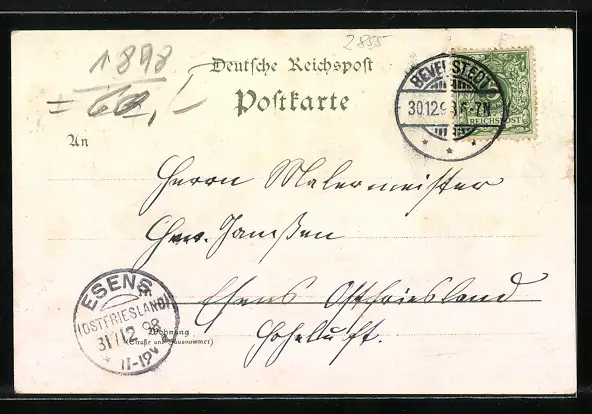 2855
1898
Deutsche Reichspost
Postkarte
BEVENSTEDT
30.12.98.6-7N.
REICHSPOST
An
Herrn Malermeister
Janssen
in Esens Ostfriesland
Hoheluft.
ESENS
(OSTFRIESLAND)
31/12.98
11-12V
Wohnung
(Straße und Hausnummer)